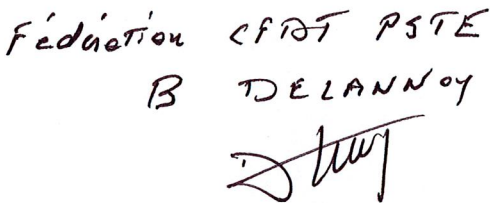 Fédération CFDT PSTE
B DELANNOY